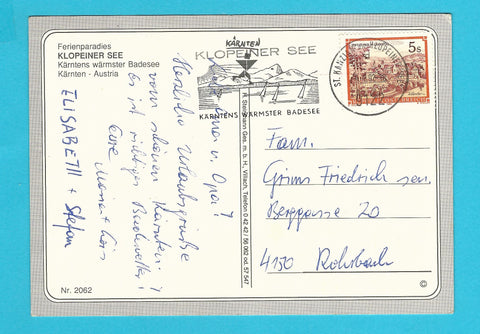 Ferienparadies
KLOPEINER SEE
Kärntens wärmster Badesee
Kärnten - Austria
KÄRNTEN
KLOPEINER SEE
KÄRNTENS WÄRMSTER BADESEE
ST. KANZIAN
5 s
REPUBLIK ÖSTERREICH
Oma u. Opa!
Herzliche Urlaubsgrüße
vom schönen Kärnten!
Es ist richtiges Badewetter!
Eure
ELISABETH + Stefan
Nr. 2062
Ges. m. b. H., Villach, Telefon 0 42 42 / 56 062 od. 57 547
Fam.
Grims Friedrich sen.
Berggasse 20
4150 Rohrbach
©